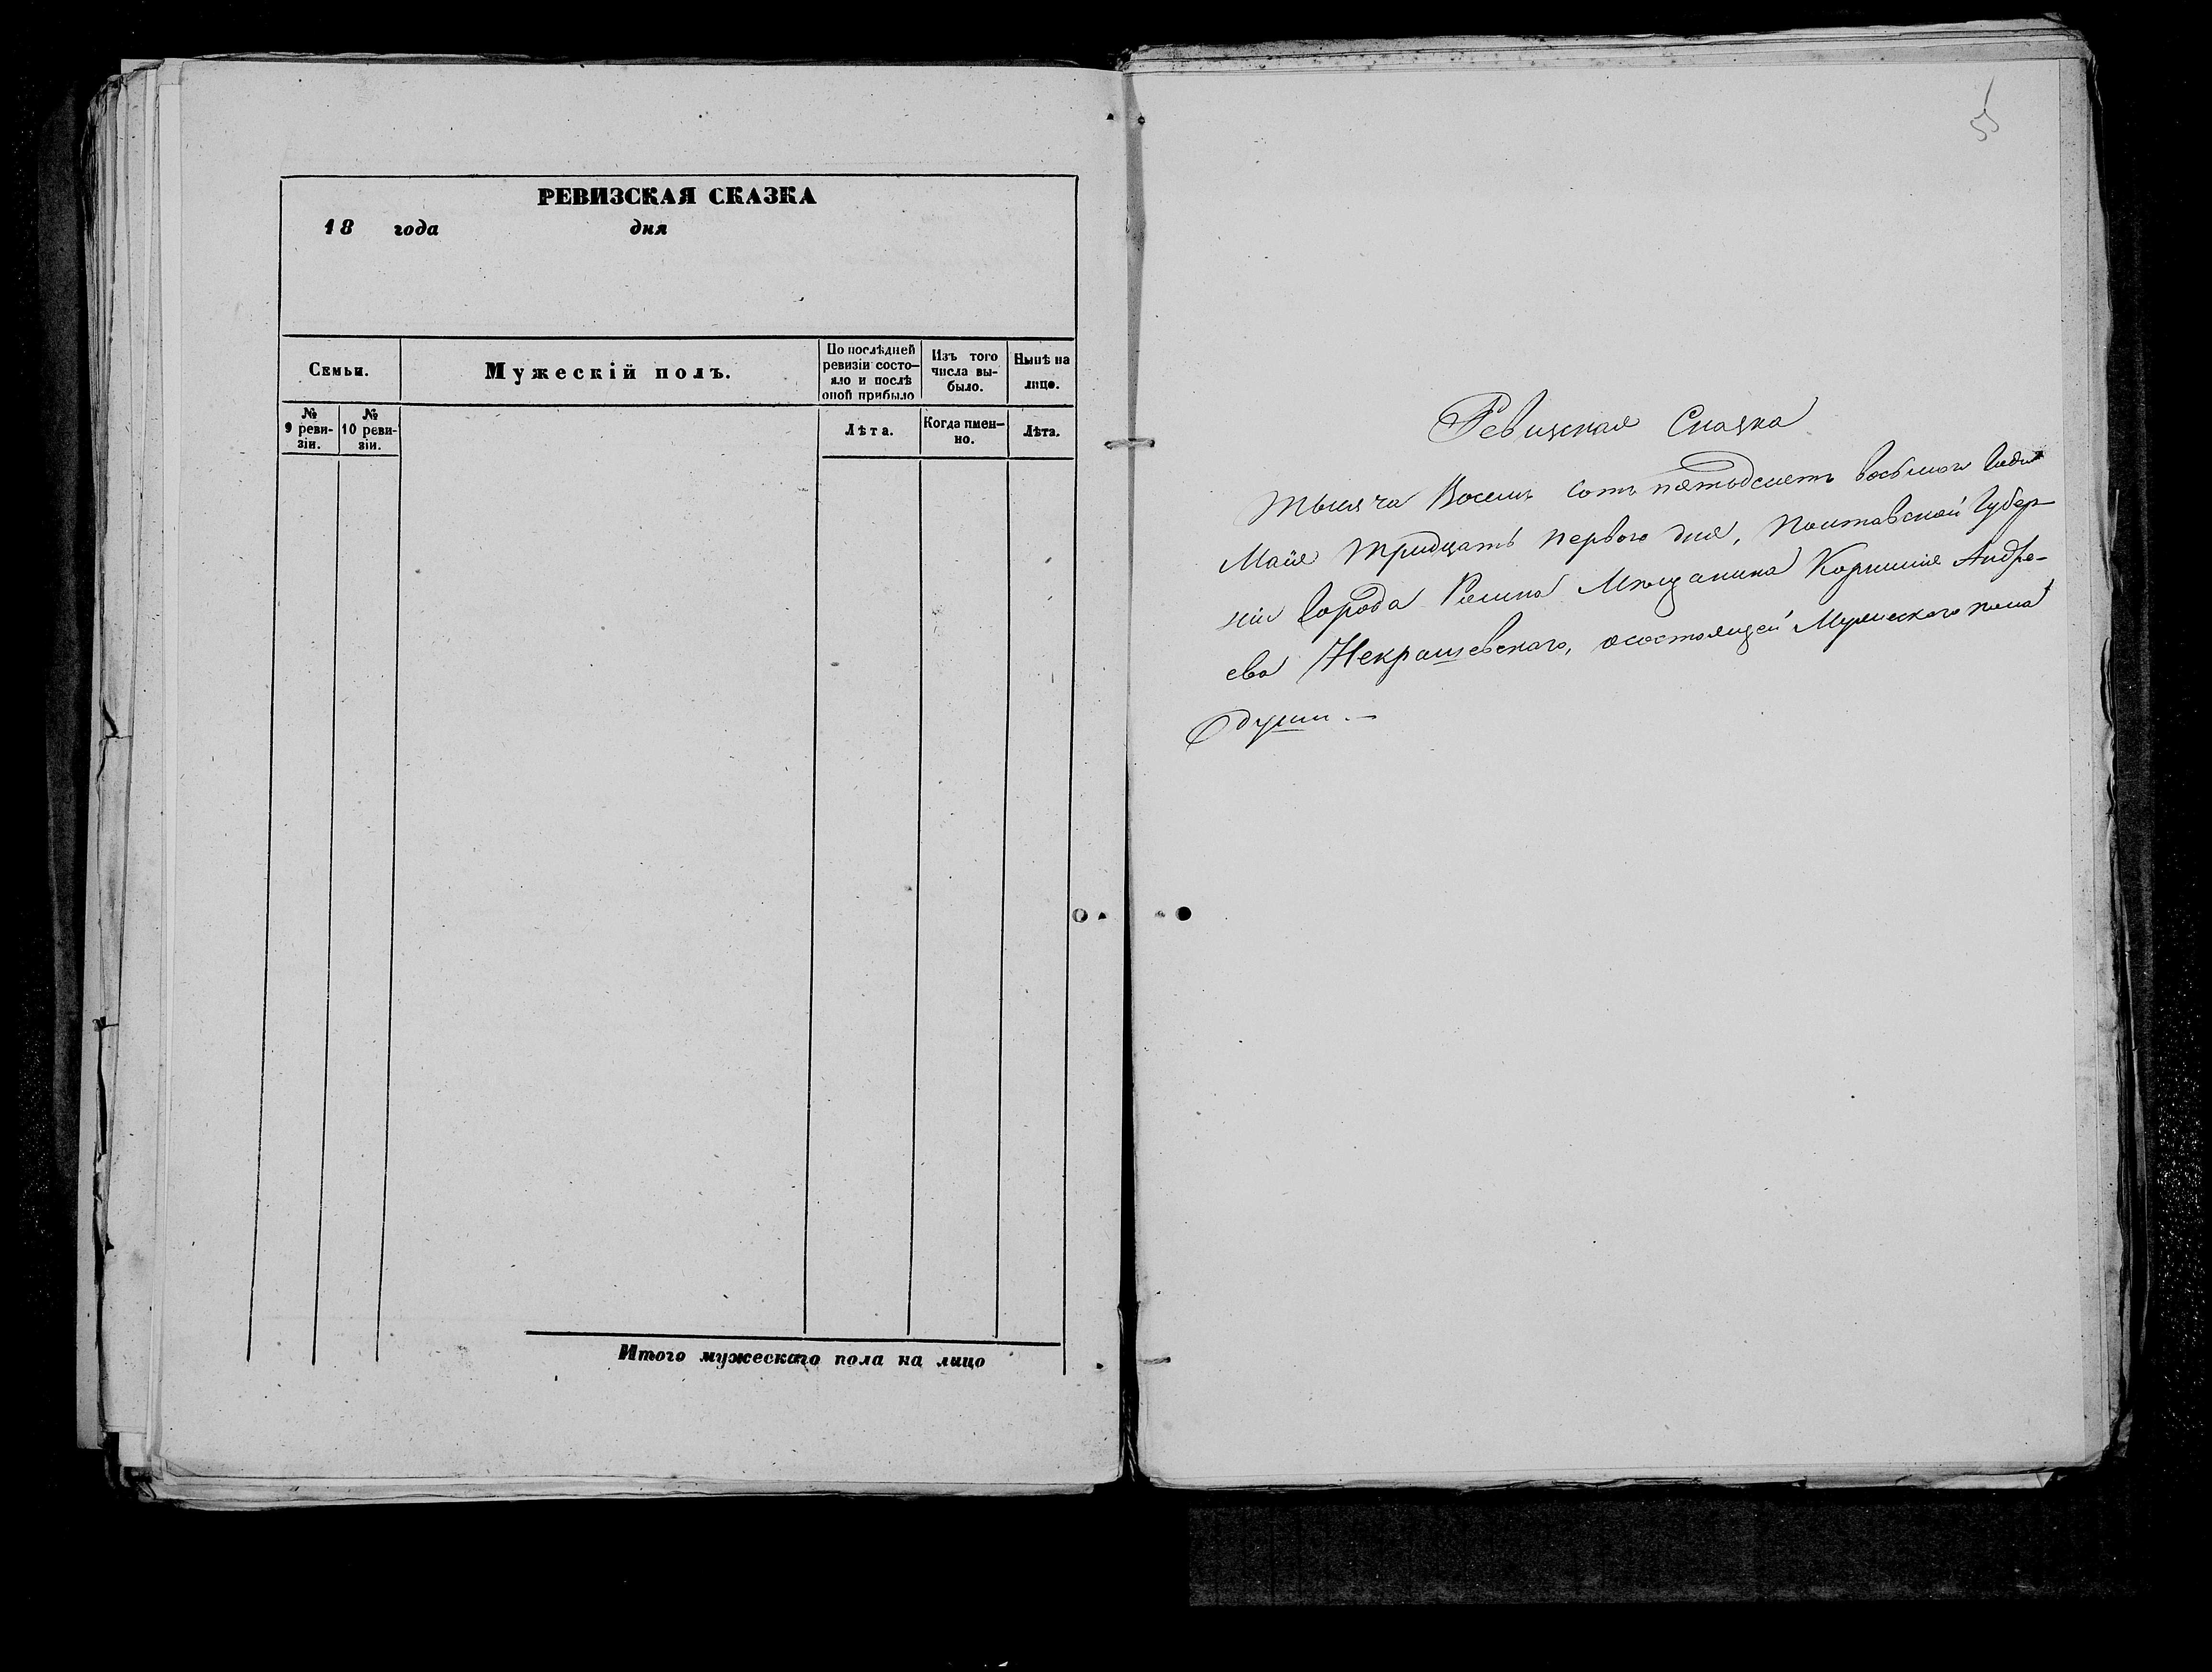 РЕВИЗСКАЯ СКАЗКА
18 года дня
Семьи.
Мужескій полъ.
По послѣдней
ревизіи состо-
яло и послѣ
оной прибыло
Изъ того
числа вы-
было.
Нынѣ на
лицо.
№
9 реви-
зіи.
№
10 реви-
зіи.
Лѣта.
Когда имен-
но.
Лѣта.
Итого мужескаго пола на лицо
55
Ревизская Сказка
Тысяча Восемь сотъ пятодсметъ восьмого Года
Маія тридцать первого дня, Полтавской Губер-
ніи Города Ромна Мѣщанина Корнилія Андре-
ева Некрашевского, осостоящей Мужеского пола
души. —